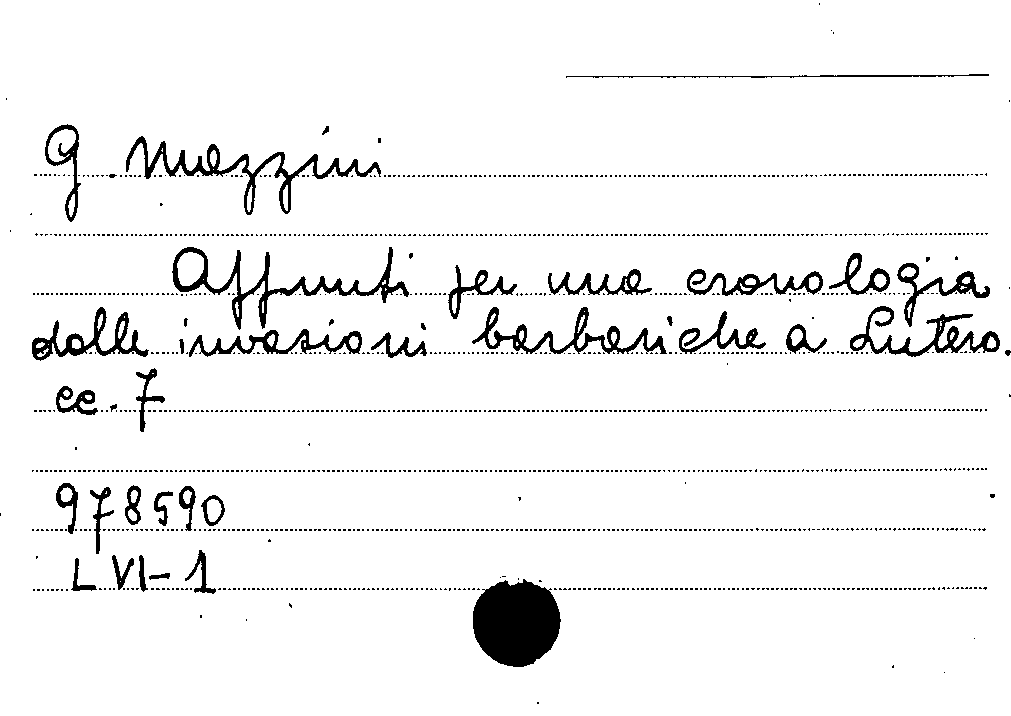 G. Mazzini
Appunti per una cronologia
dalle invasioni barbariche a Lutero.
cc. 7
978590
L VI - 1